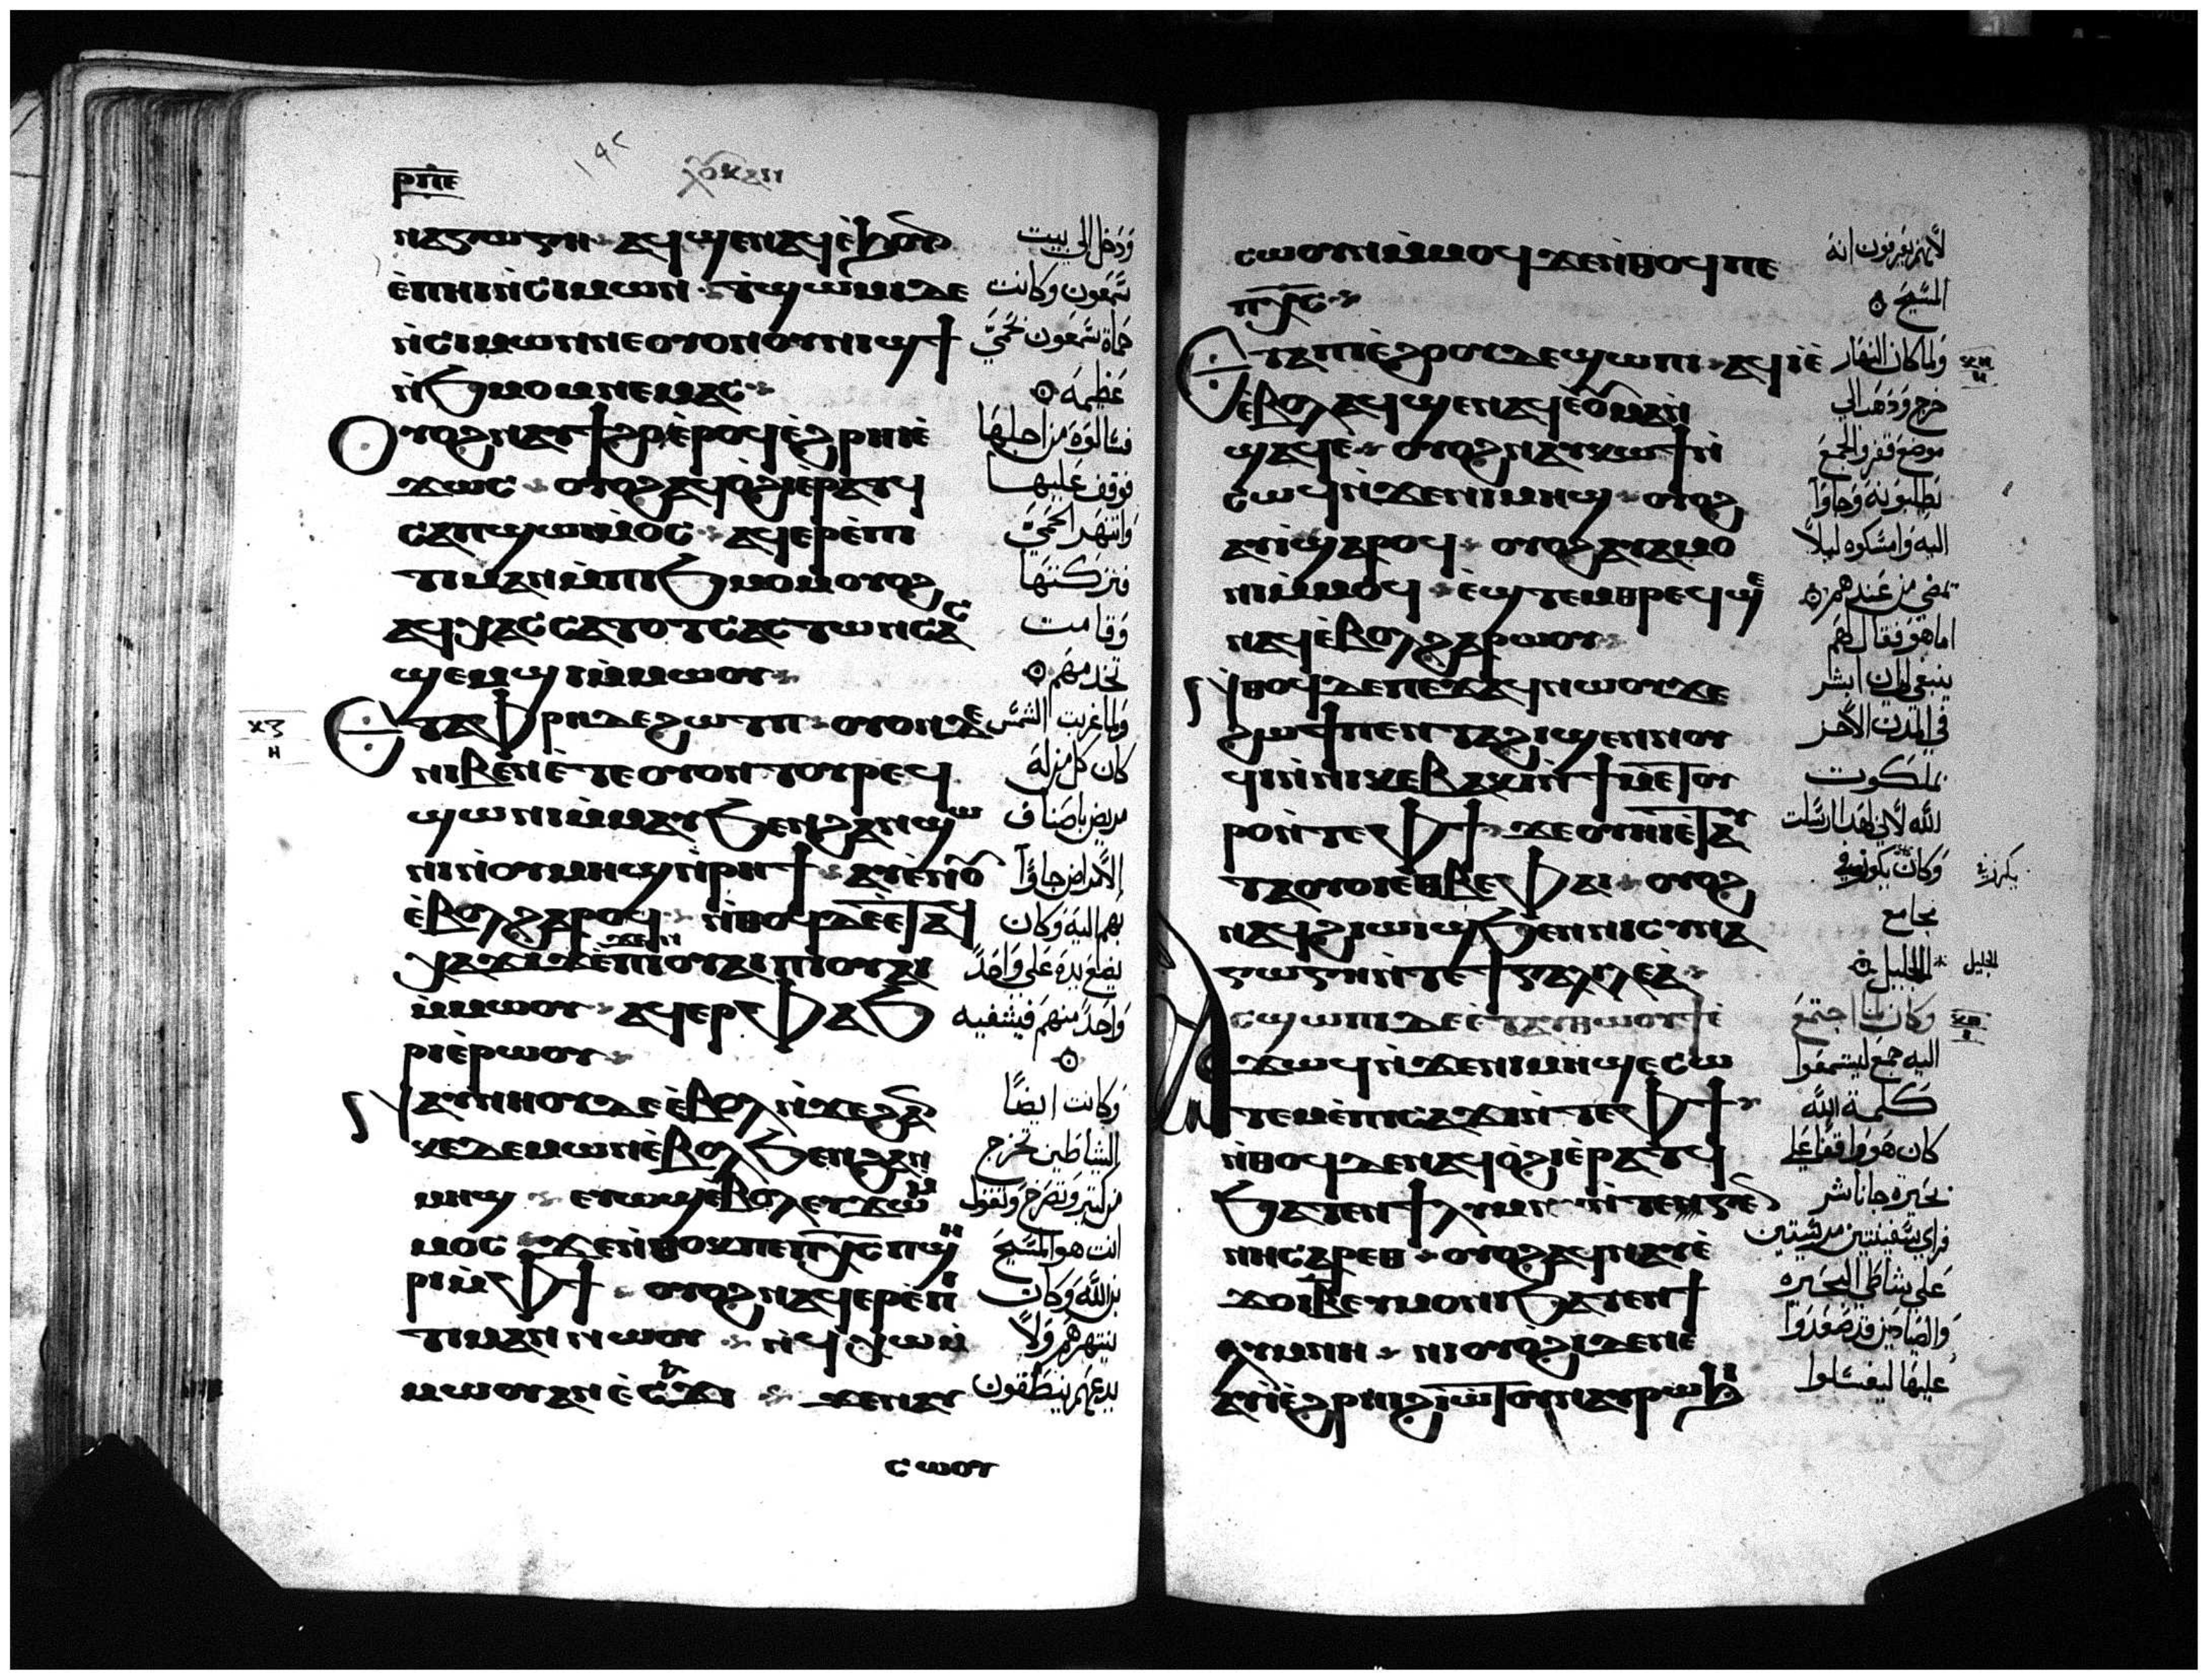 ⲣⲡⲉ
ⲛⲁⲅⲱⲅⲏ ⲁϥϣⲉⲛⲁϥⲉϧⲟⲩⲛ
ⲉⲡⲏⲓⲛⲥⲓⲙⲱⲛ ϯϣⲱⲙⲓⲇⲉ
ⲛⲥⲓⲙⲱⲛⲛⲉⲟⲩⲟⲛⲟⲩⲛⲓϣϯ
ⲛϧⲙⲟⲙⲛⲉⲙⲁⲥ
ⲟⲩⲟϩⲛⲁⲩϯϩⲟⲉⲣⲟϥⲉϩⲣⲏⲓⲉ
ϫⲱⲥ ⲟⲩⲟϩⲁϥⲟϩⲓⲉⲣⲁⲧϥ
ⲥⲁⲡϣⲱⲓⲙⲙⲟⲥ ⲁϥⲉⲣⲉⲡⲓ
ⲧⲓⲙⲁⲛⲙⲡⲓϧⲙⲟⲙⲟⲩⲟϩ
ⲁϥⲭⲁⲥ ⲥⲁⲧⲟⲧⲥⲁⲥⲧⲱⲛⲥⲁⲥ
ϣⲉⲙϣⲓⲙⲙⲱⲟⲩ
ⲉⲧⲁⲫⲣⲏⲇⲉϩⲱⲧⲡ ⲟⲩⲟⲛⲇⲉ
ⲛⲓⲃⲉⲛⲉⲧⲉⲟⲩⲟⲛⲧⲟⲩⲣⲉϥ
ϣⲱⲛⲓⲙⲙⲁⲩϧⲉⲛϩⲁⲛϣⲱ
ⲛⲓⲛⲟⲩⲙⲏϣⲛⲣⲏϯ ⲁⲩⲉⲛⲟⲩ
ⲉⲃⲟⲗϩⲁⲣⲟϥ ⲛⲑⲟϥⲇⲉⲉⲧⲁϥ
ⲭⲁϫⲓϫⲉⲛⲡⲓⲟⲩⲁⲓⲡⲓⲟⲩⲁⲓ
ⲙⲙⲱⲟⲩ ⲁϥⲉⲣⲫⲁϧ
ⲣⲓⲉⲣⲱⲟⲩ
ⲛⲁⲩⲛⲏⲟⲩⲇⲉⲉⲃⲟⲗⲛϫⲉϩⲁⲛ
ⲕⲉⲇⲉⲙⲱⲛⲉⲃⲟⲗϧⲉⲛϩⲁⲛ
ⲙⲏϣ ⲉⲩⲱϣⲉⲃⲟⲗⲉⲩϫⲱⲙ
ⲙⲟⲥ ϫⲉⲛⲑⲟⲕⲡⲉⲡⲭⲥⲡϣⲏ
ⲣⲓⲙⲫϯ ⲟⲩⲟϩⲛⲁϥⲉⲣⲉⲡⲓ
ⲧⲓⲙⲁⲛⲛⲱⲟⲩ ⲛϥⲭⲱⲙ
ⲙⲱⲟⲩⲁⲛⲉⲥⲁϫⲓ ϫⲉⲛⲁⲩ
ⲥⲱⲟⲩ
ودخل الى بيت
سمعون وكانت
حماة سمعون بحمى
عظيمه
فسالوه من اجلها
فوقف عليها
وانتهر الحمى
فتركتها
وقامت
تخدمهم
ولما غربت الشمس
كان كل من له
مريض باصناف
الامراض جاوا
بهم اليه وكان
يضع يده على واحد
واحد منهم فيشفيه
وكانت ايضا
الشياطين تخرج
من كثير وتصرخ وتقول
انت هو المسيح
بن الله وكان
ينتهرهم ولا
يدعهم ينطقون
ⲕⲍ
ⲏ
ⲥⲱⲟⲩⲛⲙⲙⲟϥϫⲉⲛⲑⲟϥⲡⲉ
ⲡⲭⲥ
ⲉⲧⲁⲡⲓⲉϩⲟⲟⲩⲇⲉϣⲱⲡⲓ ⲁϥⲓⲉ
ⲉⲃⲟⲗⲁϥϣⲉⲛⲁϥⲉⲟⲩⲙⲁⲛ
ϣⲁϥⲉ ⲟⲩⲟϩⲛⲁⲩⲕⲱϯⲛ
ⲥⲱϥⲛϫⲉⲛⲓⲙⲏϣ ⲟⲩⲟϩ
ⲁⲩⲓϣⲁⲣⲟϥ ⲟⲩⲟϩⲁⲩⲁⲙⲟ
ⲛⲓⲙⲙⲟϥ ⲉϣⲧⲉⲙⲑⲣⲉϥϣⲉ
ⲛⲁϥⲉⲃⲟⲗϩⲁⲣⲱⲟⲩ
ⲛⲑⲟϥⲇⲉⲡⲉϫⲁϥⲛⲱⲟⲩϫⲉ
ϩⲱϯⲡⲉⲛⲧⲁϩⲓϣⲉⲛⲛⲟⲩ
ϥⲓⲛⲛⲓⲕⲉⲃⲁⲕⲓⲛϯⲙⲉⲧⲟⲩ
ⲣⲟⲛⲧⲉⲫϯ ϫⲉⲟⲩⲏⲓⲉⲧⲁⲩ
ⲧⲁⲟⲩⲟⲓⲉⲑⲃⲉⲫⲁⲓ ⲟⲩⲟϩ
ⲛⲁϥϩⲓⲱⲓϣϧⲉⲛⲛⲓⲥⲩⲛⲁ
ⲅⲱⲅⲏⲛⲧⲉϯⲅⲁⲗⲓⲗⲉⲁ
ⲥϣⲱⲡⲓⲇⲉⲉⲧⲁⲩⲑⲱⲟⲩϯⲉ
ϫⲱϥⲛϫⲉⲛⲓⲙⲏϣⲉⲥⲱ
ⲧⲉⲙⲉⲡⲓⲥⲁϫⲓⲛⲧⲉⲫϯ
ⲛⲑⲟϥⲇⲉⲛⲁϥⲟϩⲓⲉⲣⲁⲧϥ
ϧⲁⲧⲉⲛϯⲗⲩⲙⲛⲏⲛⲧⲉⲅⲉⲛ
ⲛⲏⲥⲁⲣⲉⲑ ⲟⲩⲟϩⲁϥⲛⲁⲩⲉ
ϫⲟⲓⲃⲉⲩⲙⲟⲛⲓϧⲁⲧⲉⲛϯ
ⲗⲩⲙⲛⲏ ⲛⲓⲟⲩⲟϩⲓⲇⲉⲛⲉ
ⲁⲩⲓⲉϩⲣⲏⲓϩⲓⲱⲧⲟⲩⲛⲁⲩⲣⲱϧⲓ
لانهم يعرفون انه
المسيح
ولما كان النهار
خرج وذهب الى
موضع قفر والجمع
تطلبونه وجاوا
اليه وامسكوه ليلا
يمضي من عندهم
اما هو فقال لهم
ينبغي لي ان ابشر
في المدن الاخر
بملكوت
الله لاني لهذا ارسلت
وكان يكرز في
مجامع
الجليل
وكان لما اجتمع
اليه جمع ليسمعوا
كلمة الله
كان هو واقفا على
بحيرة جاناشر
فراى سفينتين مرستين
على شاطي البحيره
والصيادين قد صعدوا
عليها ليغسلوا
ⲕⲏ
ⲏ
يكرز في
الجليل